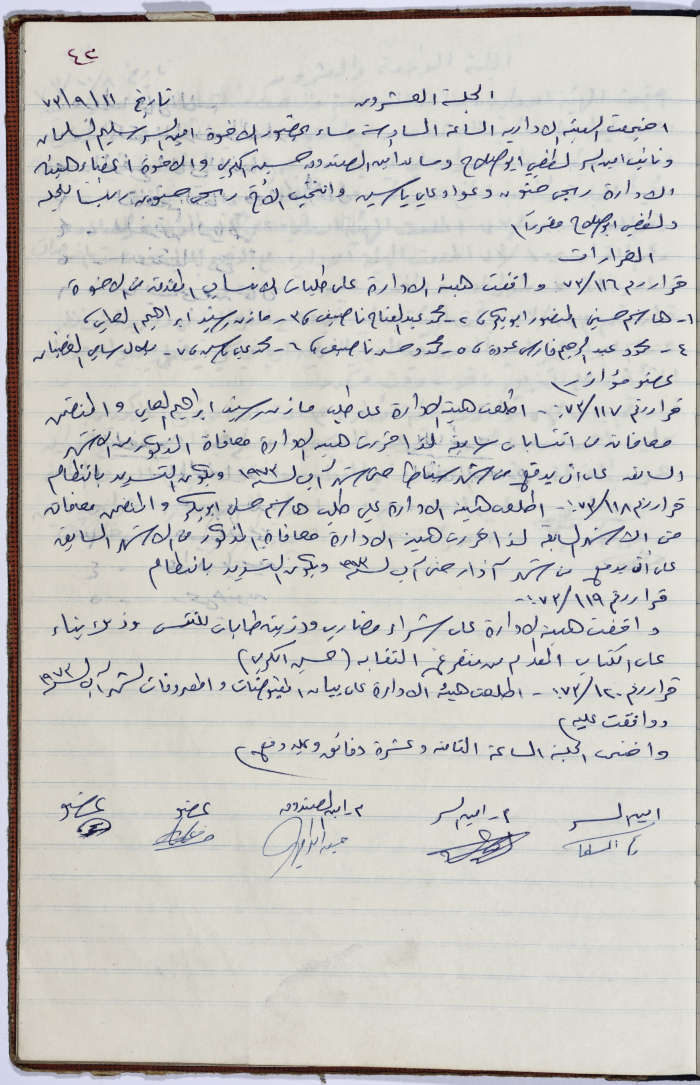 ٤٢
الجلسة العشرون تاريخ ٧٣/٩/١١
اجتمعت الهيئة الادارية الساعة السادسة مساء بحضور الاخوة امين السر سليم السلمان
ونائب امين السر لطفي ابو صلاح ومساعد امين الصندوق حسين الكرزي والاخوة اعضاء هيئة
الادارة ربحي حنون وعواد علي ياسين وانتخب الأخ ربحي حنون رئيسا للجلسة
ولطفي ابو صلاح مقررا
القرارات
قرار رقم ٧٣/١١٦ وافقت هيئة الادارة على طلبات الانتساب المقدمة من الاخوة
١- هاشم حسني المنصور ابو بكر، ٢- محمد عبد الفتاح ناصيف، ٣- مازن رشيد ابراهيم العايب،
٤- محمود عبد الرحيم فارس عودة، ٥- محمود حسن ناصيف، ٦- محمد علي ياسين، ٧- بلال سامي القضمان
عضو مؤازر
قرار رقم ٧٣/١١٧ :- اطلعت هيئة الادارة على طلب مازن رشيد ابراهيم العايب والمتضمن
معافاته من انتسابات سابقة لذا قررت هيئة الادارة معافاة المذكور من الاشهر
السابقة على ان يدفع من شهر شباط حتى شهر آب لسنة ١٩٧٣ ويكون التسديد بانتظام
قرار رقم ٧٣/١١٨ :- اطلعت هيئة الادارة على طلب هاشم حسني ابو بكر والمتضمن معافاته
من الاشهر السابقة لذا قررت هيئة الادارة معافاة المذكور من الاشهر السابقة
على أن يدفع من شهر آذار حتى آب لسنة ١٩٧٣ ويكون التسديد بانتظام
قرار رقم ٧٣/١١٩ :-
وافقت هيئة الادارة على شراء مضارب ودزينة طابات للتنس وذلك بناء
على الكتاب المقدم من متفرغ النقابة (حسين الكرزي)
قرار رقم ٧٣/١٢٠ :- اطلعت هيئة الادارة على بيان المقبوضات والمصروفات لشهر آب لسنة ١٩٧٣
ووافقت عليه
واختتمت الجلسة الساعة الثامنة وعشرة دقائق وعليه وقع
امين السر م. امين السر م. امين الصندوق عضو عضو